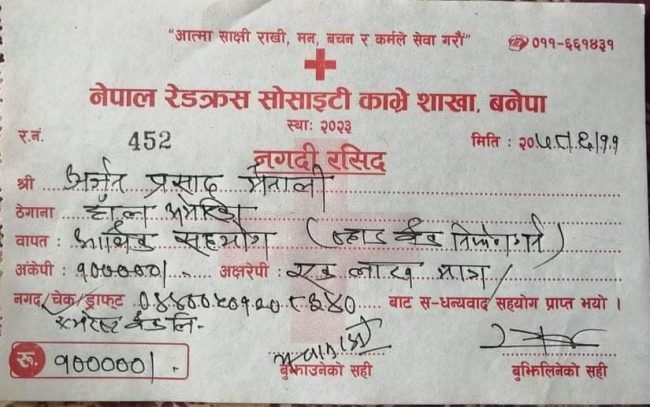 “आत्मा साक्षी राखी, मन, बचन र कर्मले सेवा गरौं”
०११-६६१४३१
नेपाल रेडक्रस सोसाइटी काभ्रे शाखा, बनेपा
स्था: २०२३
र.नं. 452
मिति : २०५८।६।११
नगदी रसिद
श्री अर्जुन प्रसाद मैनाली
ठेगाना हाल अमेरिका
वापत : आर्थिक सहयोग (ब्लड बैंक निर्माणार्थ)
अंकेपी : १०००००।- अक्षरेपी : एक लाख मात्र।
नगद/चेक/ड्राफट बाट स-धन्यवाद सहयोग प्राप्त भयो ।
रू. १०००००।-
बुझाउनेको सही
बुझिलिनेको सही